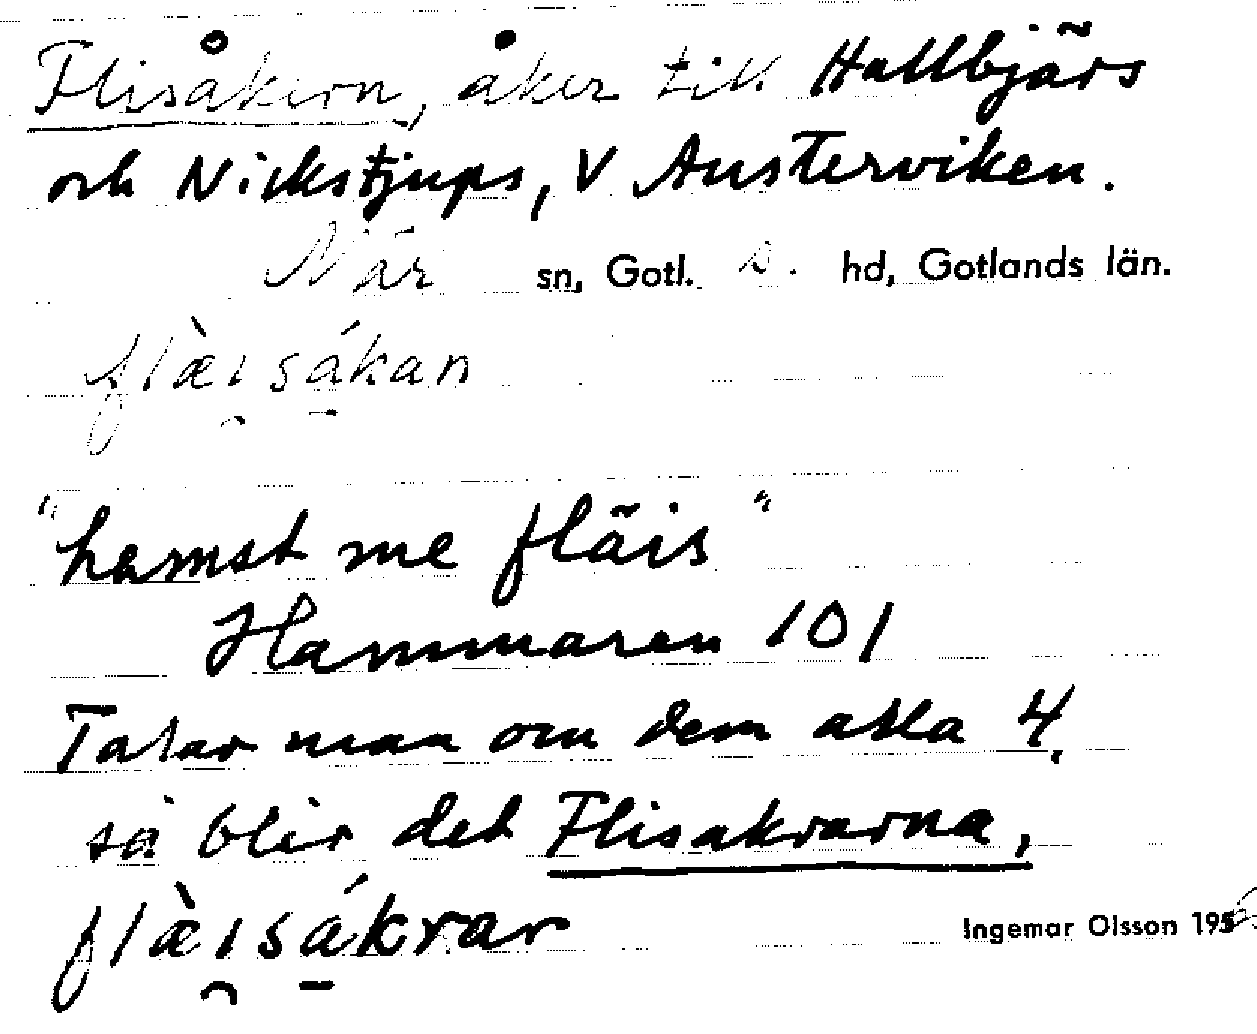 Flisåkern, åker till Hallbjärs
och Nickstjups, V Austerviken.
När sn, Gotl. s. hd, Gotlands län.
flæ̀ısákan
"hemst me fläis"
Hammaren 101
Talar man om dem alla 4,
så blir det Flisakrarna,
flæ̀ısákrar
Ingemar Olsson 1956